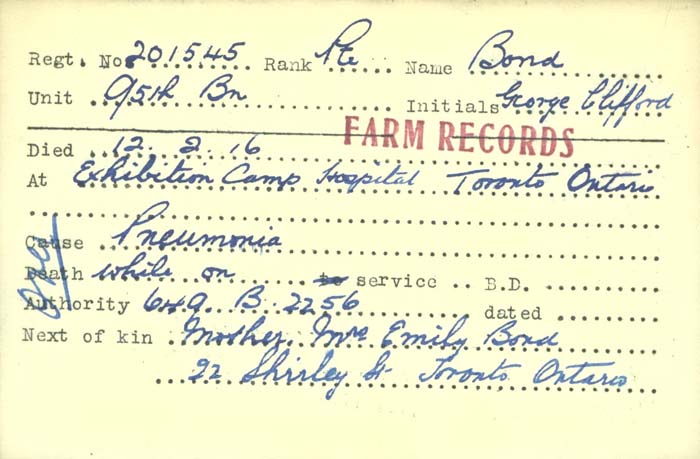 Regt. No. 201545 Rank Pte Name Bond
Unit 95th Bn Initials George Clifford
FARM RECORDS
Died 12. 2. 16
At Exhibition Camp Hospital Toronto Ontario
Cause Pneumonia
Death while on to service B.D.
Authority 649. B. 2256 dated
Next of kin Mother. Mrs Emily Bond
22 Shirley St Toronto Ontario